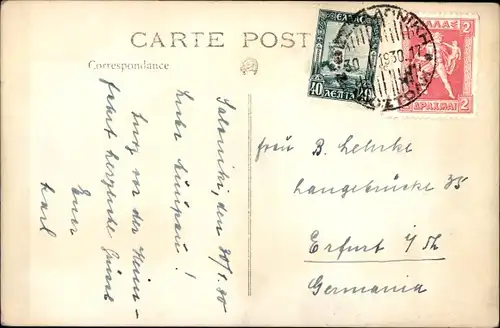 CARTE POST
Correspondance
ΕΛΛΑΣ
40 ΛΕΠΤΑ 40
ΕΛΛΑΣ 2
2 ΔΡΑΧΜΑΙ 2
1930
Saloniki, den 30/1.30
Liebe
!
Kurz vor der Heim-
fahrt herzliche Grüsse
Euer
Karl
Frau B. Lehrke
Langebrücke 35
Erfurt i/Th
Germania